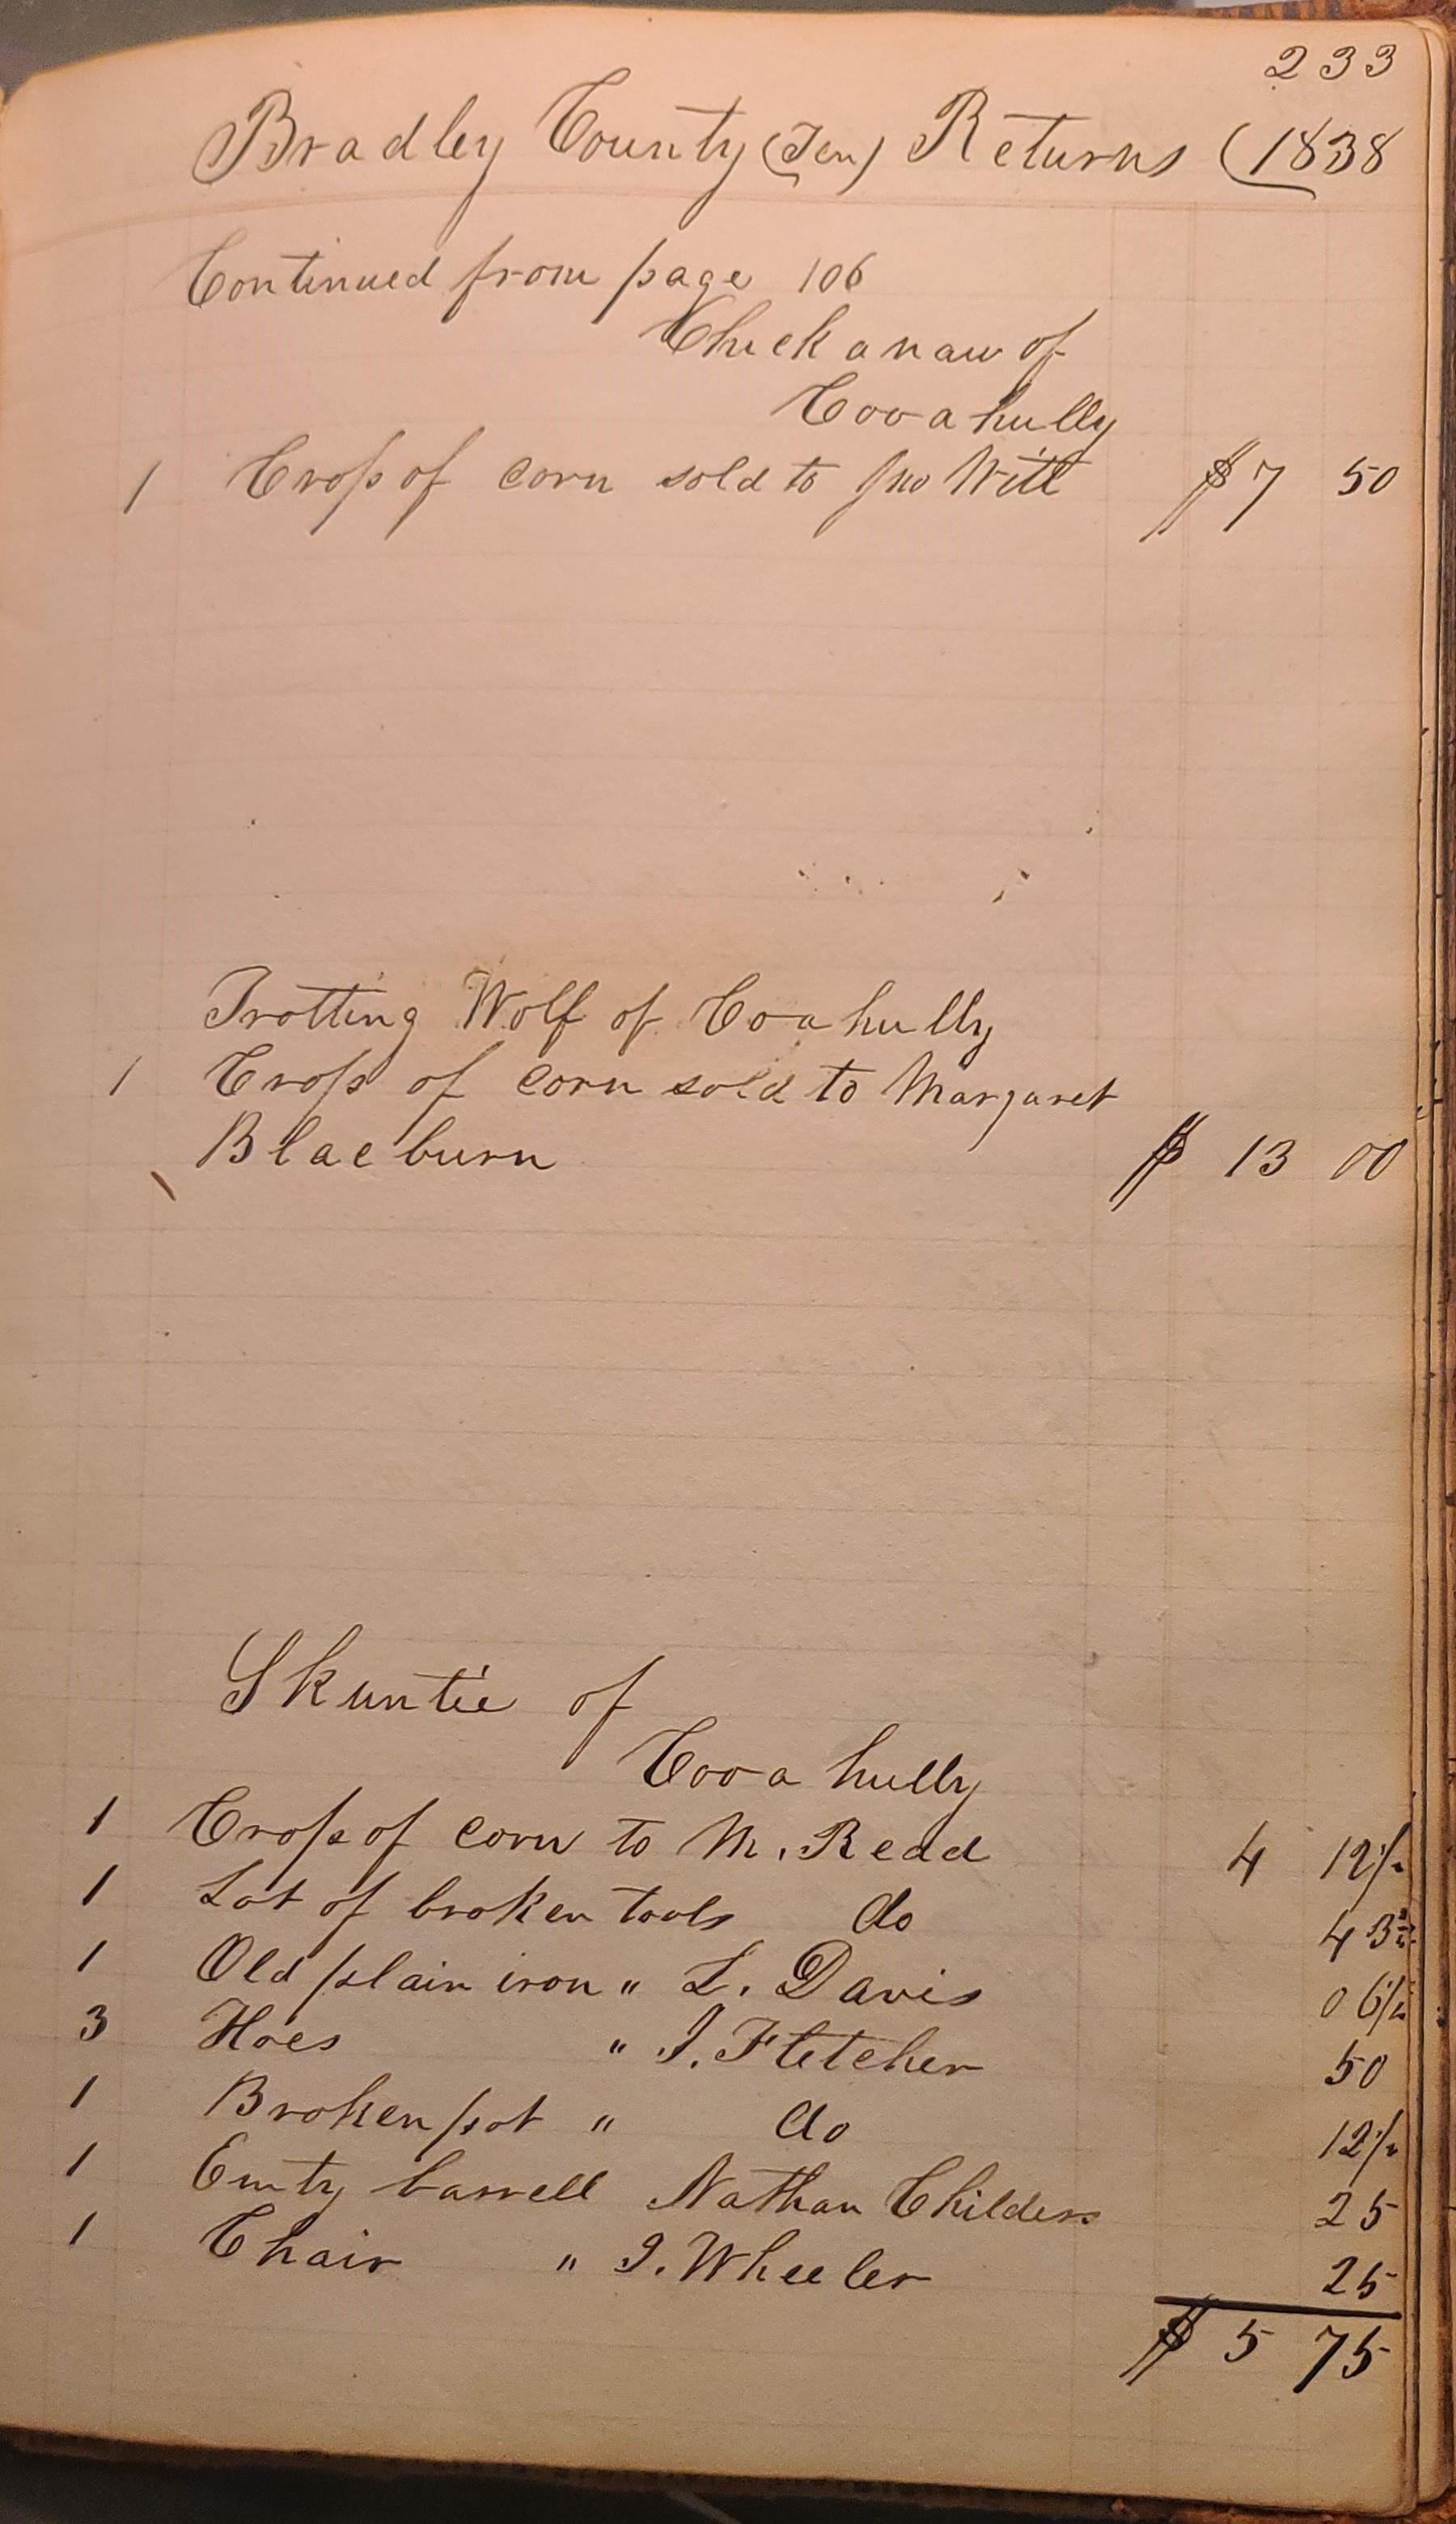 233
Bradley County (Ten) Returns (1838
Continued from page 106
Chuckanaw of
Cooahully
1 Crop of corn sold to Jno Witt $7 50
Trotting Wolf of Cooahully
1 Crop of corn sold to Margaret
Blacburn $ 13 00
Skuntie of
Cooahully
1 Crop of corn to M. Read 4 12 1/2
1 Lot of broken tools do 43 3/4
1 Old plain iron " L. Davis 06 1/4
3 Hoes " J. Fletcher 50
1 Broken pot " do 12 1/2
1 Emty barrell Nathan Childers 25
1 Chair " J. Wheeler 25
$ 5 75